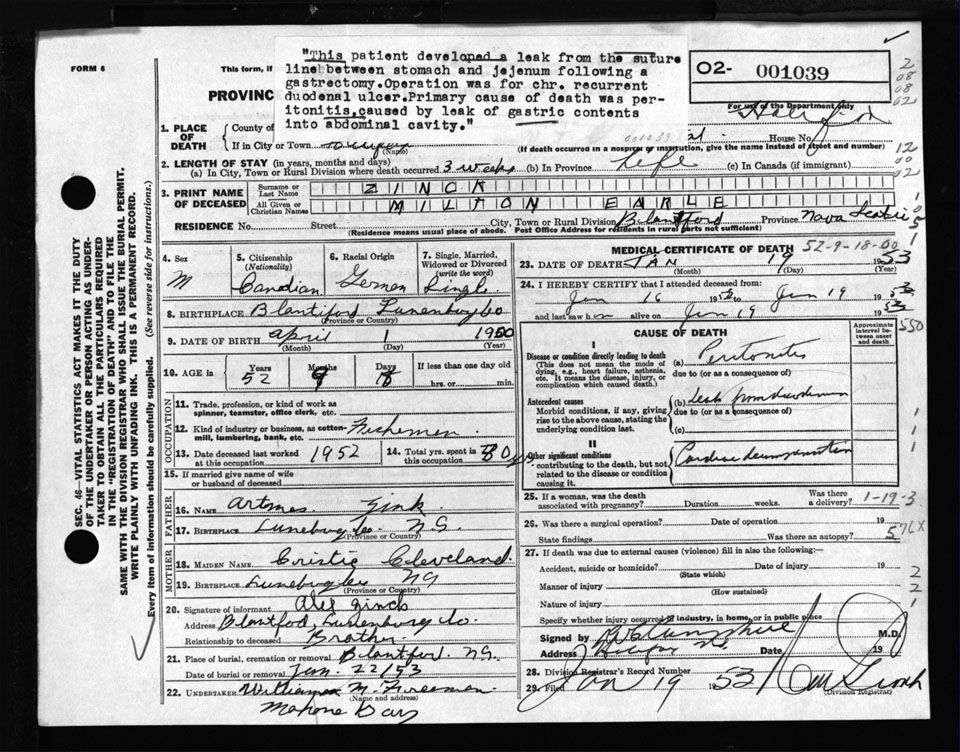 FORM 6
"This patient developed a leak from the suture
line between stomach and jejenum following a
gastrectomy.Operation was for chr. recurrent
duodenal ulcer.Primary cause of death was per-
itonitis,caused by leak of gastric contents
into abdominal cavity."
This form, if
PROVINC
02- 001039
For use of the Department only
2
08
08
02
SEC. 46—VITAL STATISTICS ACT MAKES IT THE DUTY
OF THE UNDERTAKER OR PERSON ACTING AS UNDER-
TAKER TO OBTAIN ALL THE PARTICULARS REQUIRED
IN THE "REGISTRATION OF DEATH" AND TO FILE THE
SAME WITH THE DIVISION REGISTRAR WHO SHALL ISSUE THE BURIAL PERMIT.
WRITE PLAINLY WITH UNFADING INK. THIS IS A PERMANENT RECORD.
Every item of information should be carefully supplied. (See reverse side for instructions.)
1. PLACE OF DEATH
County of Halifax
If in City or Town (Name) 001039 St. House No.
(If death occurred in a hospital or institution, give the name instead of street and number)
2. LENGTH OF STAY (in years, months and days)
(a) In City, Town or Rural Division where death occurred 3 weeks (b) In Province life (c) In Canada (if immigrant)
3. PRINT NAME OF DECEASED
Surname or Last Name ZINCK
All Given or Christian Names MILTON EARLE
RESIDENCE No. Street City, Town or Rural Division Blantford Province Nova Scotia
(Residence means usual place of abode. Post Office Address for residents in rural parts not sufficient)
4. Sex M
5. Citizenship (Nationality) Canadian
6. Racial Origin German
7. Single, Married, Widowed or Divorced (write the word) Single
8. BIRTHPLACE Blantiford Lunenburg Co
(Province or Country)
9. DATE OF BIRTH April 1 1900
(Month) (Day) (Year)
10. AGE in Years 52 Months 9 Days 18 If less than one day old hrs. or min.
OCCUPATION
11. Trade, profession, or kind of work as spinner, teamster, office clerk, etc.
12. Kind of industry or business, as cotton-mill, lumbering, bank, etc. Fishermen
13. Date deceased last worked at this occupation 1952
14. Total yrs. spent in this occupation 30 yrs
15. If married give name of wife or husband of deceased
FATHER
16. NAME Artmas Zink
17. BIRTHPLACE Lunebury Co. N.S.
(Province or Country)
MOTHER
18. MAIDEN NAME Cristie Cleveland
19. BIRTHPLACE Lunebury Co NS
(Province or Country)
20. Signature of informant Alex Zinck
Address Blantfod, Lunenburg Co.
Relationship to deceased Brother
21. Place of burial, cremation or removal Blantford. NS.
Date of burial or removal Jan. 22/53
22. UNDERTAKER William M. Fireman
(Name and address)
Mahone Bay
MEDICAL CERTIFICATE OF DEATH 52-9-18-00
23. DATE OF DEATH JAN 19 1953
(Month) (Day) (Year)
24. I HEREBY CERTIFY that I attended deceased from:
Jan 16 1953 to Jan 19 1953
and last saw him alive on Jan 19 1953
CAUSE OF DEATH
Approximate interval between onset and death
550
I
Disease or condition directly leading to death
(This does not mean the mode of dying, e.g., heart failure, asthenia, etc. It means the disease, injury, or complication which caused death.)
(a) Peritonitis
due to (or as a consequence of)
Antecedent causes
Morbid conditions, if any, giving rise to the above cause, stating the underlying condition last.
(b) Leak from duodenum
due to (or as a consequence of)
(c)
II
Other significant conditions
contributing to the death, but not related to the disease or condition causing it.
Cardiac decompensation
25. If a woman, was the death associated with pregnancy? Duration weeks. Was there a delivery? 1-19-3
26. Was there a surgical operation? Date of operation 19
State findings Was there an autopsy?
27. If death was due to external causes (violence) fill in also the following:—
Accident, suicide or homicide? Date of injury 19
(State which)
Manner of injury
(How sustained)
Nature of injury
Specify whether injury occurred in industry, in home, or in public place
Signed by M.D.
Address Halifax N.S. Date 19
28. Division Registrar's Record Number
29. Filed Jan 19 1953
(Division Registrar)